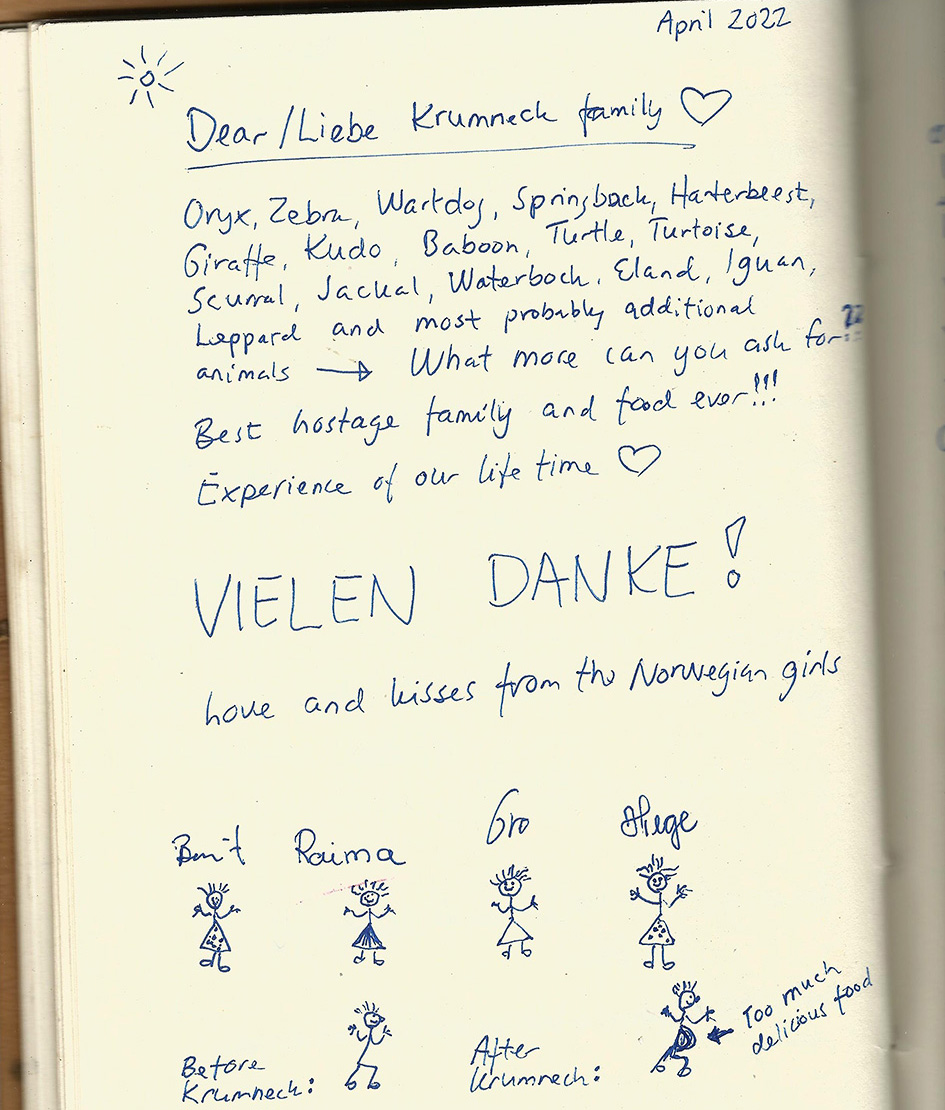 April 2022
Dear/Liebe Krumneck family
Oryx, Zebra, Wartdog, Springback, Harterbeest,
Giraffe, Kudo, Baboon, Turtle, Turtoise,
Scurral, Jackal, Waterboch, Eland, Iguan,
Leppard and most probably additional
animals → What more can you ask for??
Best hostage family and food ever!!!
Experience of our life time
VIELEN DANKE!
Love and kisses from the Norwegian girls
Raima Gro Hege
Before
Krumneck:
After
Krumneck:
Too much
delicious food